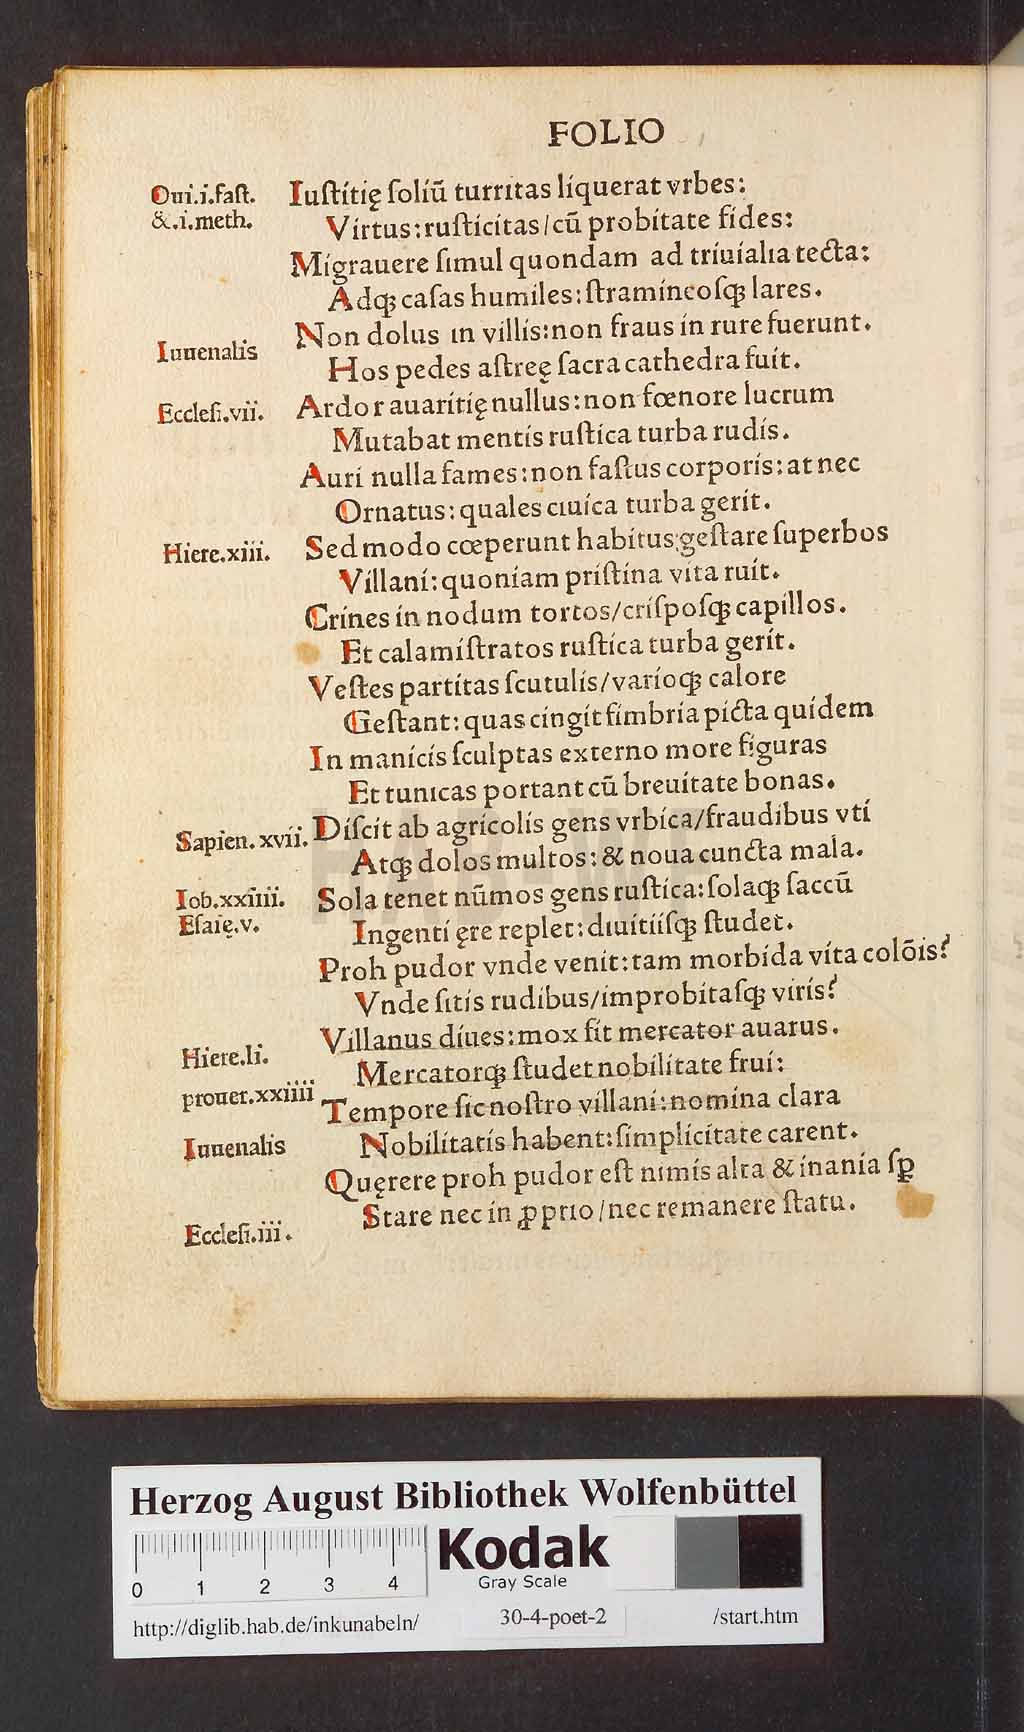 FOLIO
Oui.i.faſt.
&.i.meth.
Iuſtitię ſoliū turritas liquerat vrbes:
Virtus: ruſticitas/cū probitate fides:
Migrauere ſimul quondam ad triuialia tecta:
Adqꝫ caſas humiles: ſtramineoſqꝫ lares.
Non dolus in villis: non fraus in rure fuerunt.
Iuuenalis
Hos pedes aſtreę ſacra cathedra fuit.
Eccleſi.vii.
Ardor auaritię nullus: non fœnore lucrum
Mutabat mentis ruſtica turba rudis.
Auri nulla fames: non faſtus corporis: at nec
Ornatus: quales ciuica turba gerit.
Hiere.xiii.
Sed modo cœperunt habitus geſtare ſuperbos
Villani: quoniam priſtina vita ruit.
Crines in nodum tortos/criſpoſqꝫ capillos.
Et calamiſtratos ruſtica turba gerit.
Veſtes partitas ſcutulis/varioqꝫ calore
Geſtant: quas cingit fimbria picta quidem
In manicis ſculptas externo more figuras
Et tunicas portant cū breuitate bonas.
Sapien. xvii.
Diſcit ab agricolis gens vrbica/fraudibus vti
Atqꝫ dolos multos: & noua cuncta mala.
Iob.xxiiii.
Sola tenet nūmos gens ruſtica: ſolaqꝫ ſaccū
Eſaię.v.
Ingenti ęre replet: diuitiiſqꝫ ſtudet.
Proh pudor vnde venit: tam morbida vita colōis?
Vnde ſitis rudibus/improbitaſqꝫ viris?
Villanus diues: mox fit mercator auarus.
Hiere.li.
Mercatorqꝫ ſtudet nobilitate frui:
prouer.xxiiii
Tempore ſic noſtro villani: nomina clara
Iuuenalis
Nobilitatis habent: ſimplicitate carent.
Quęrere proh pudor eſt nimis alta & inania ſꝑ
Stare nec in ꝓprio/nec remanere ſtatu.
Eccleſi.iii.
HAB WF
Herzog August Bibliothek Wolfenbüttel
0 1 2 3 4
Kodak
Gray Scale
http://diglib.hab.de/inkunabeln/ 30-4-poet-2 /start.htm